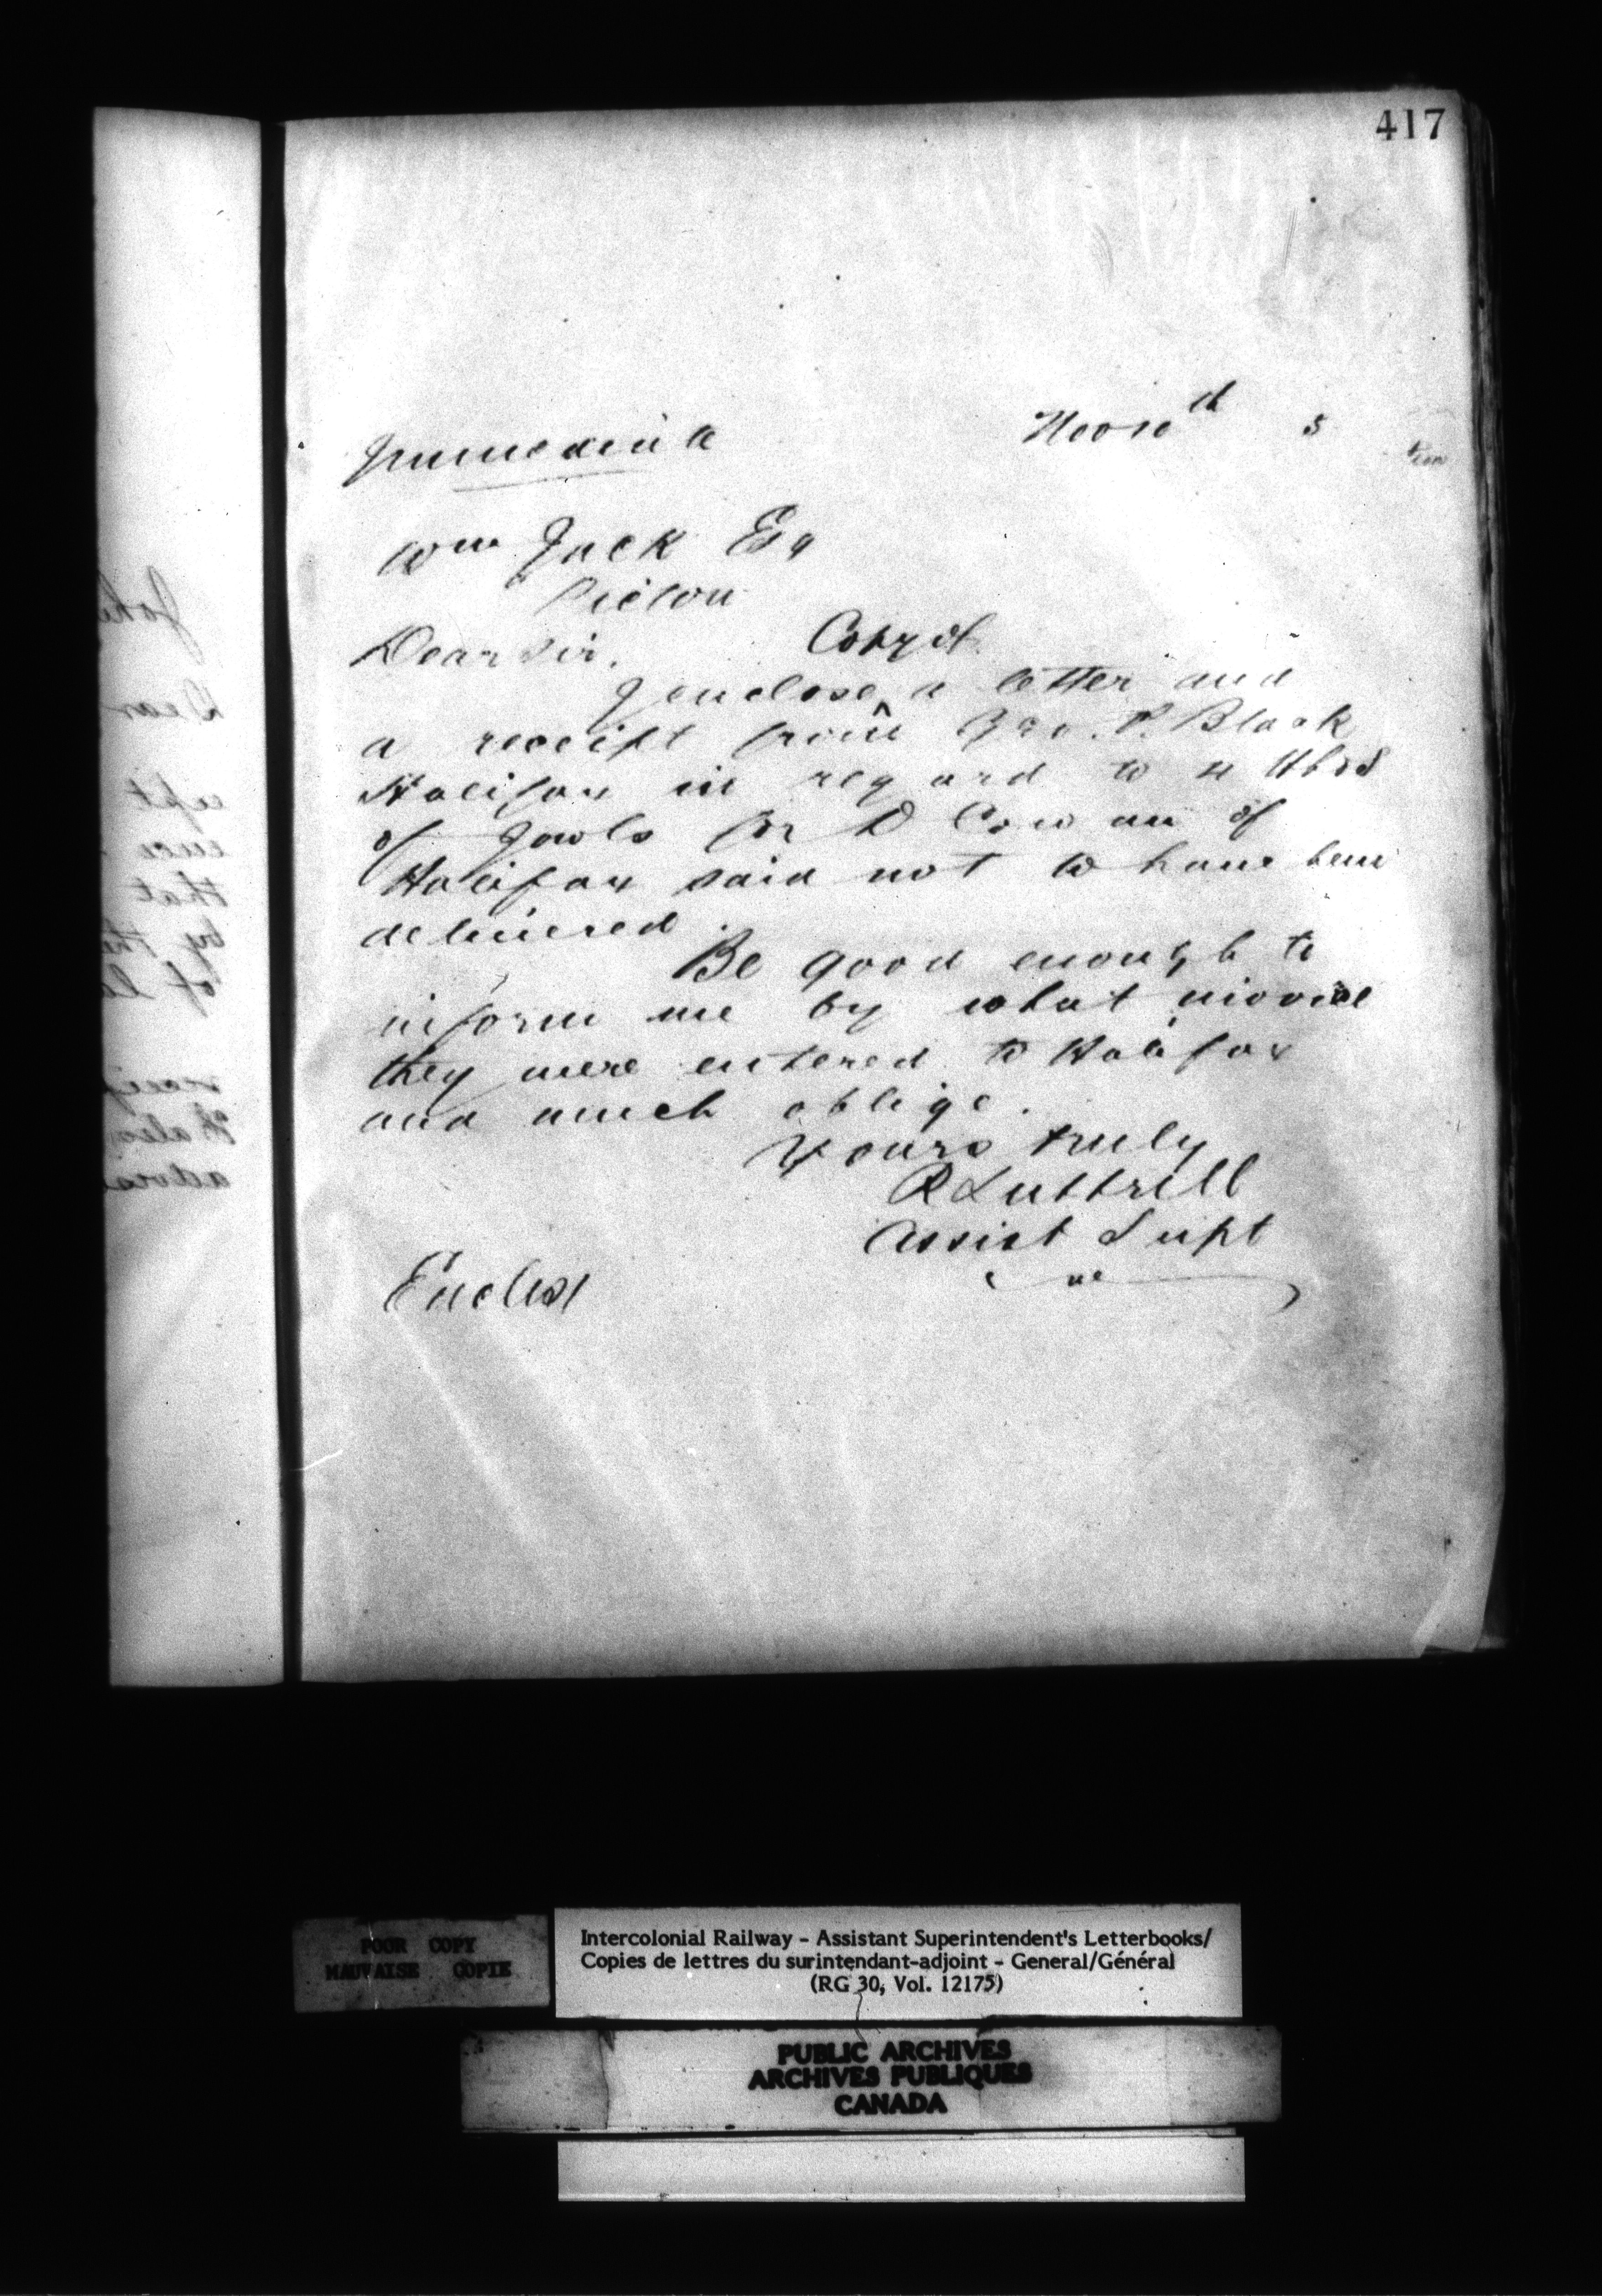 417
Immediate
5
Wm Jack Esq
Pictou
Dear Sir,
Copy of
I enclose ^ a letter and
a receipt from Geo. P. Black
Halifax in regard to 4 Hbds
of Jowls for D Cowan of
Halifax said not to have been
delivered.
Be good enough to
inform me by what invoice
they were entered to Halifax
and much oblige.
Yours truly
R Luttrell
Assist Supt
Enclos
POOR COPY
MAUVAISE COPIE
Intercolonial Railway - Assistant Superintendent's Letterbooks/
Copies de lettres du surintendant-adjoint - General/Général
(RG 30, Vol. 12175)
PUBLIC ARCHIVES
ARCHIVES PUBLIQUES
CANADA